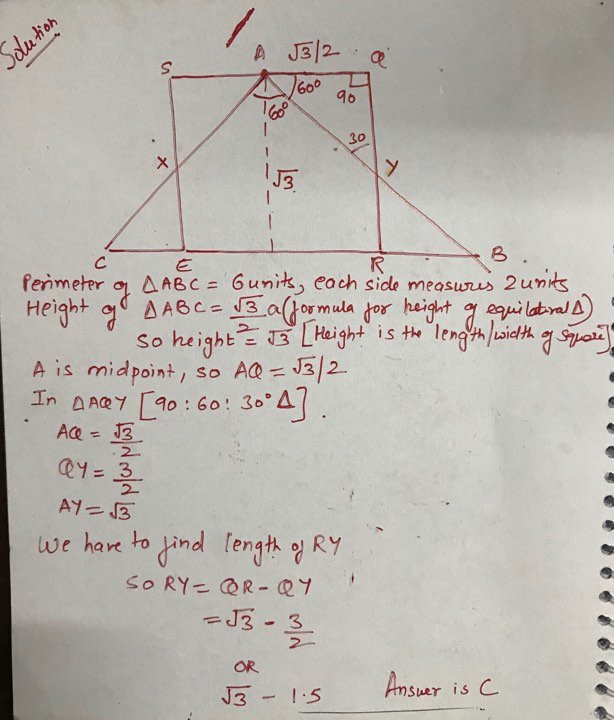 Solution
A √3/2 Q
S
60°
90
60°
30
X
Y
√3
C E R B
Perimeter of △ABC = 6units, each side measures 2units
Height of △ABC = √3/2 a (formula for height of equilateral △)
So height = √3 [Height is the length/width of square]
A is midpoint, so AQ = √3/2
In △AQY [90 : 60 : 30° △].
AQ = √3/2
QY = 3/2
AY = √3
We have to find length of RY
So RY = QR - QY
= √3 - 3/2
OR
√3 - 1.5 Answer is C